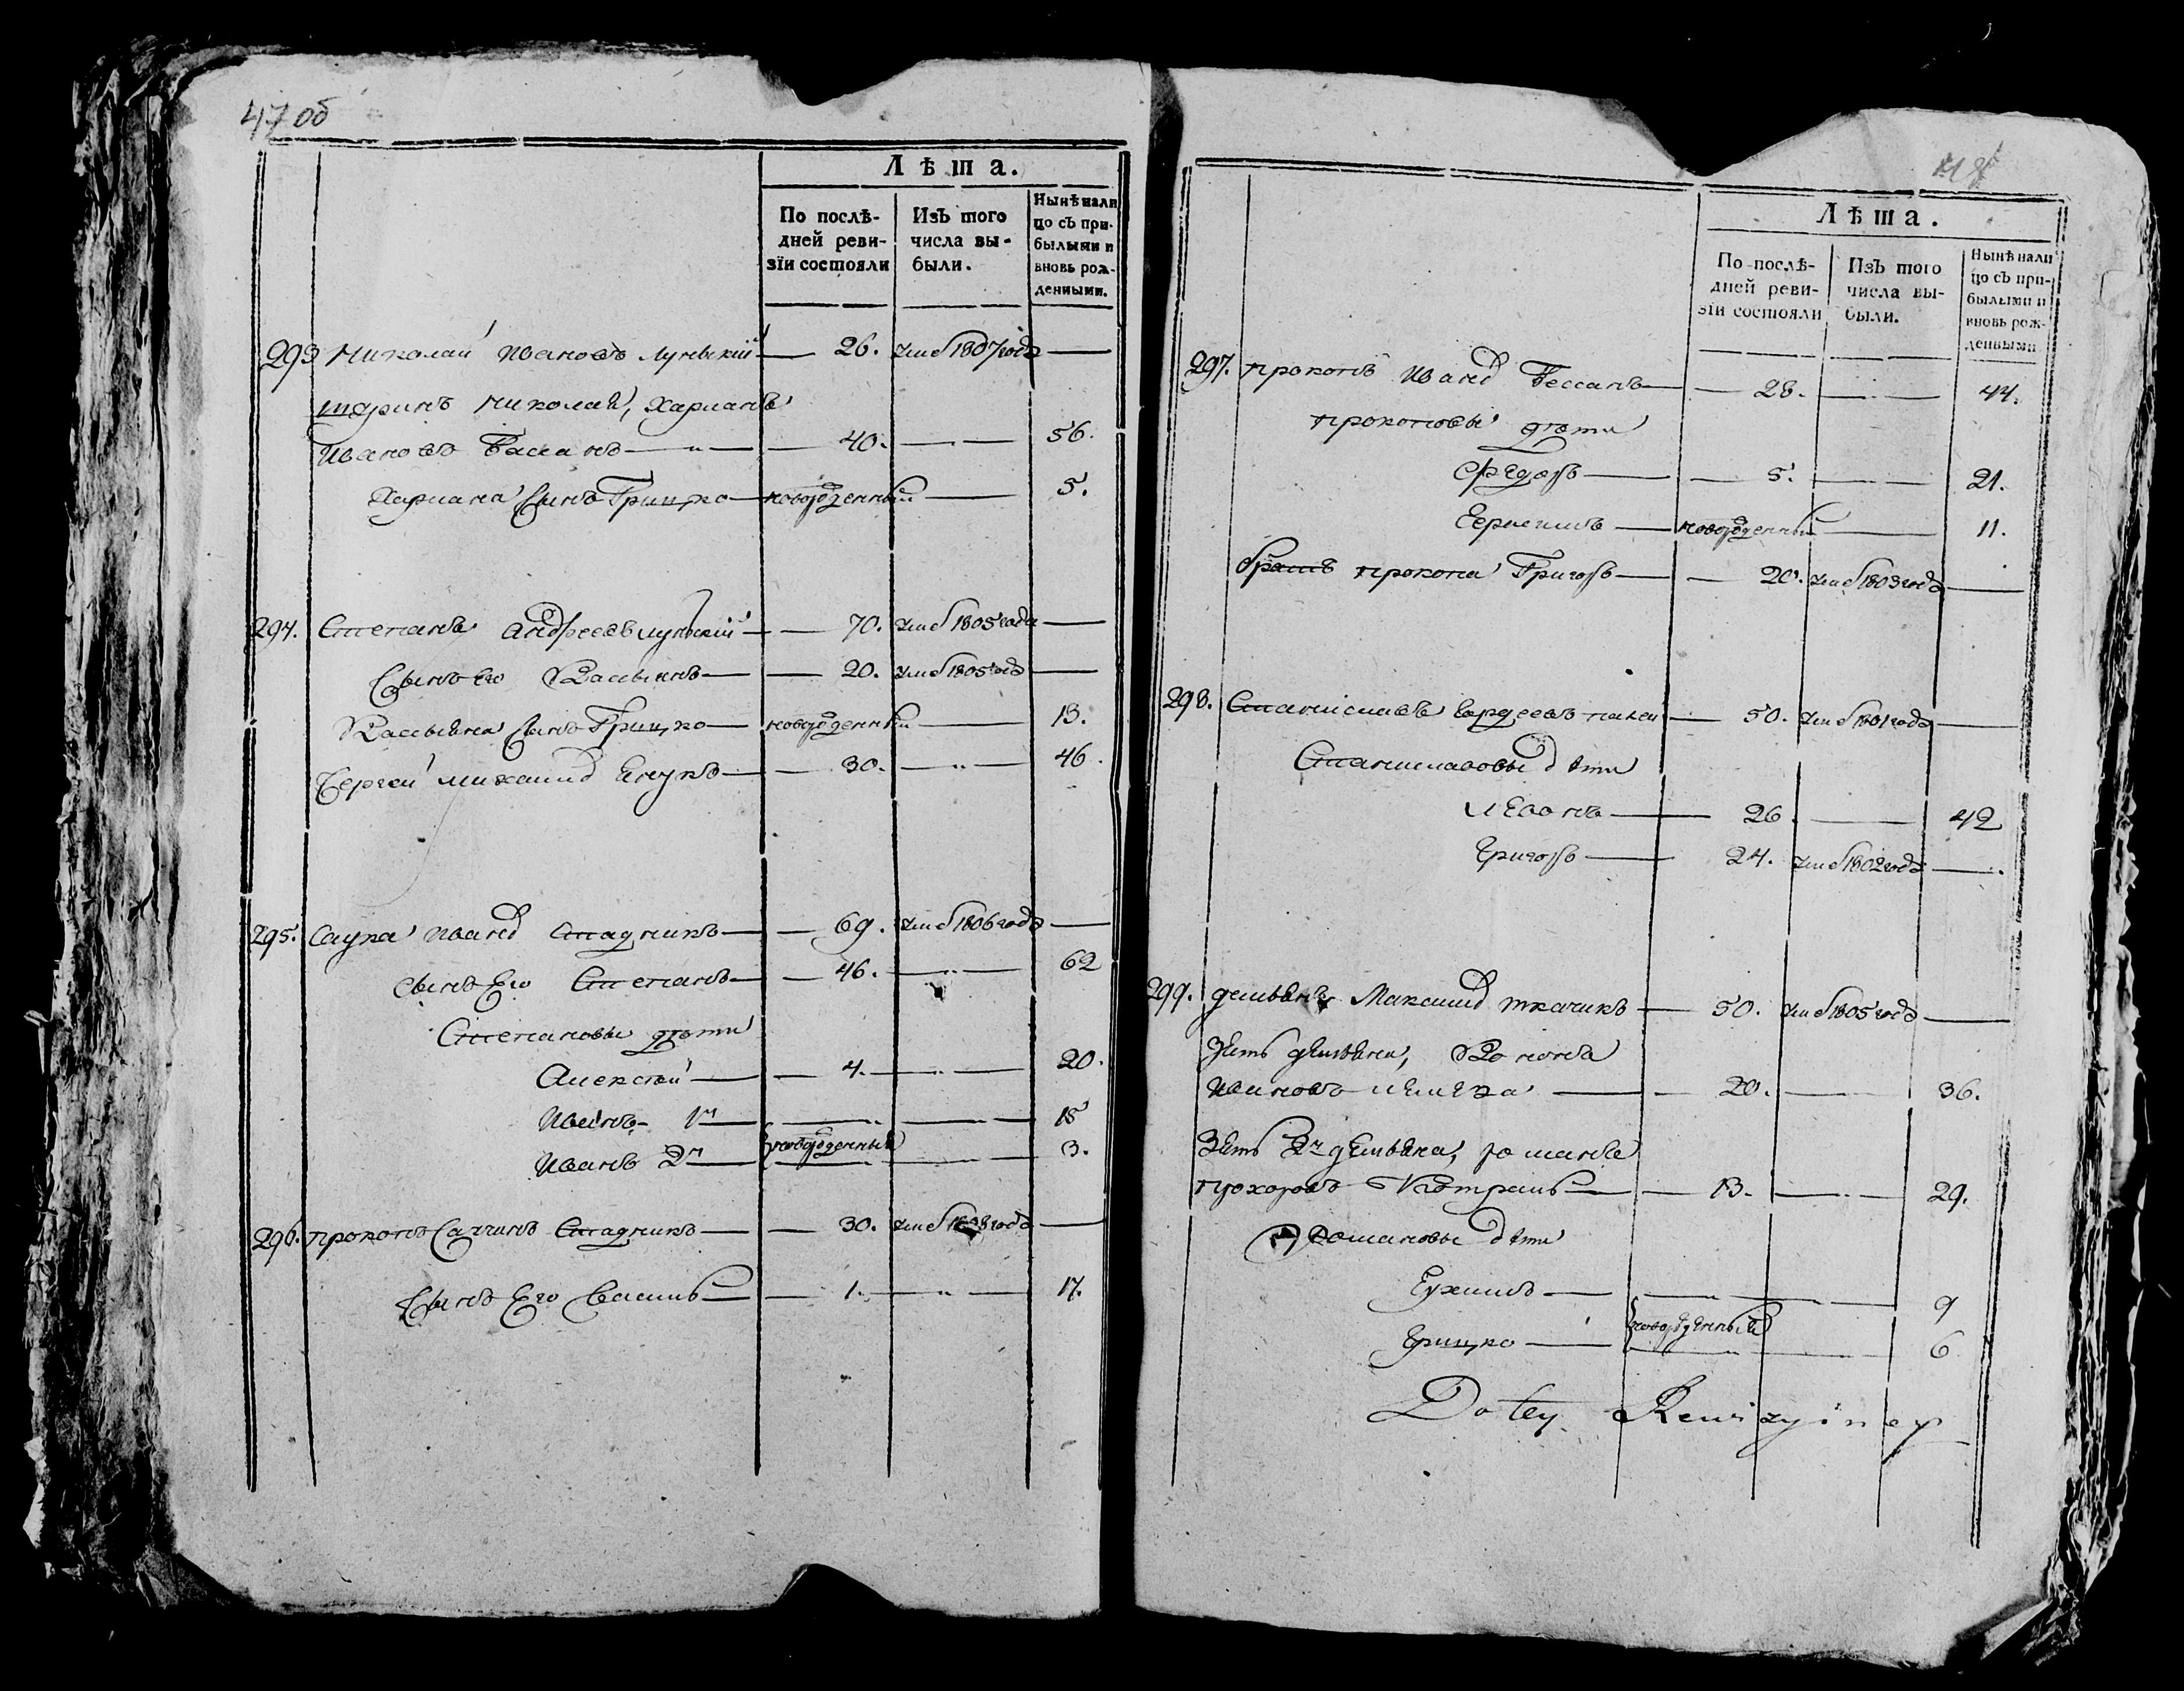 47 об
Лѣта.
По послѣ-
дней реви-
зіи состояли
Изъ того
числа вы-
были.
Нынѣ нали
цо съ при-
былыми и
вновь рож-
денными.
293 Николай Ивановъ Лунскій — 26. уме 1807 года —
Николай, Харианъ
Ивановъ Басанъ — 40. — 56.
Хариана сынъ Грицко — новорожденный — 5.
294. Степанъ Андреевъ Лунскій — 70. уме 1805 года —
сынъ его Касьянъ — 20. уме 1805 года —
Касьяна сынъ Грицко — новорожденный — 13.
Сергей Михаил — 30. — 46.
295. Саука Иван Стадникъ — 69. уме 1806 года —
сынъ Его Степанъ — 46. — 62
Степановы дѣти
Алексѣй — 4. — 20.
Иванъ 1й — — 15
Иванъ 2й — новорожденный — 3.
296. Прокопъ Саччинъ Стадникъ — 30. уме 1808 года —
сынъ Его Василь — 1. — 17.
48
Лѣта.
По послѣ-
дней реви-
зіи состояли
Изъ того
числа вы-
были.
Нынѣ нали
цо съ при-
былыми и
вновь рож-
денными
297. Прокопъ Иван Бессанъ — 28. — 44.
Прокоповы дѣти
Ѳедоръ — 5. — 21.
Герасимъ — новорожденный — 11.
братъ Прокопа Григоръ — 20. уме 1803 года —
298. Станиславъ — 50. уме 1801 года —
Станиславовы дѣти
Левонъ — 26 — 42
Григоръ — 24. уме 1802 года —
299. Демьянъ Максим Ткачикъ — 50. уме 1805 года —
Зять Демьяна,
Ивановъ — 20. — 36.
Зять 2й Демьяна, Романъ
Прохоровъ — 13. — 29.
Романовы дѣти
Еухимъ — — 9
Грицко — новорожденный — 6
Do tey Rewizyiney